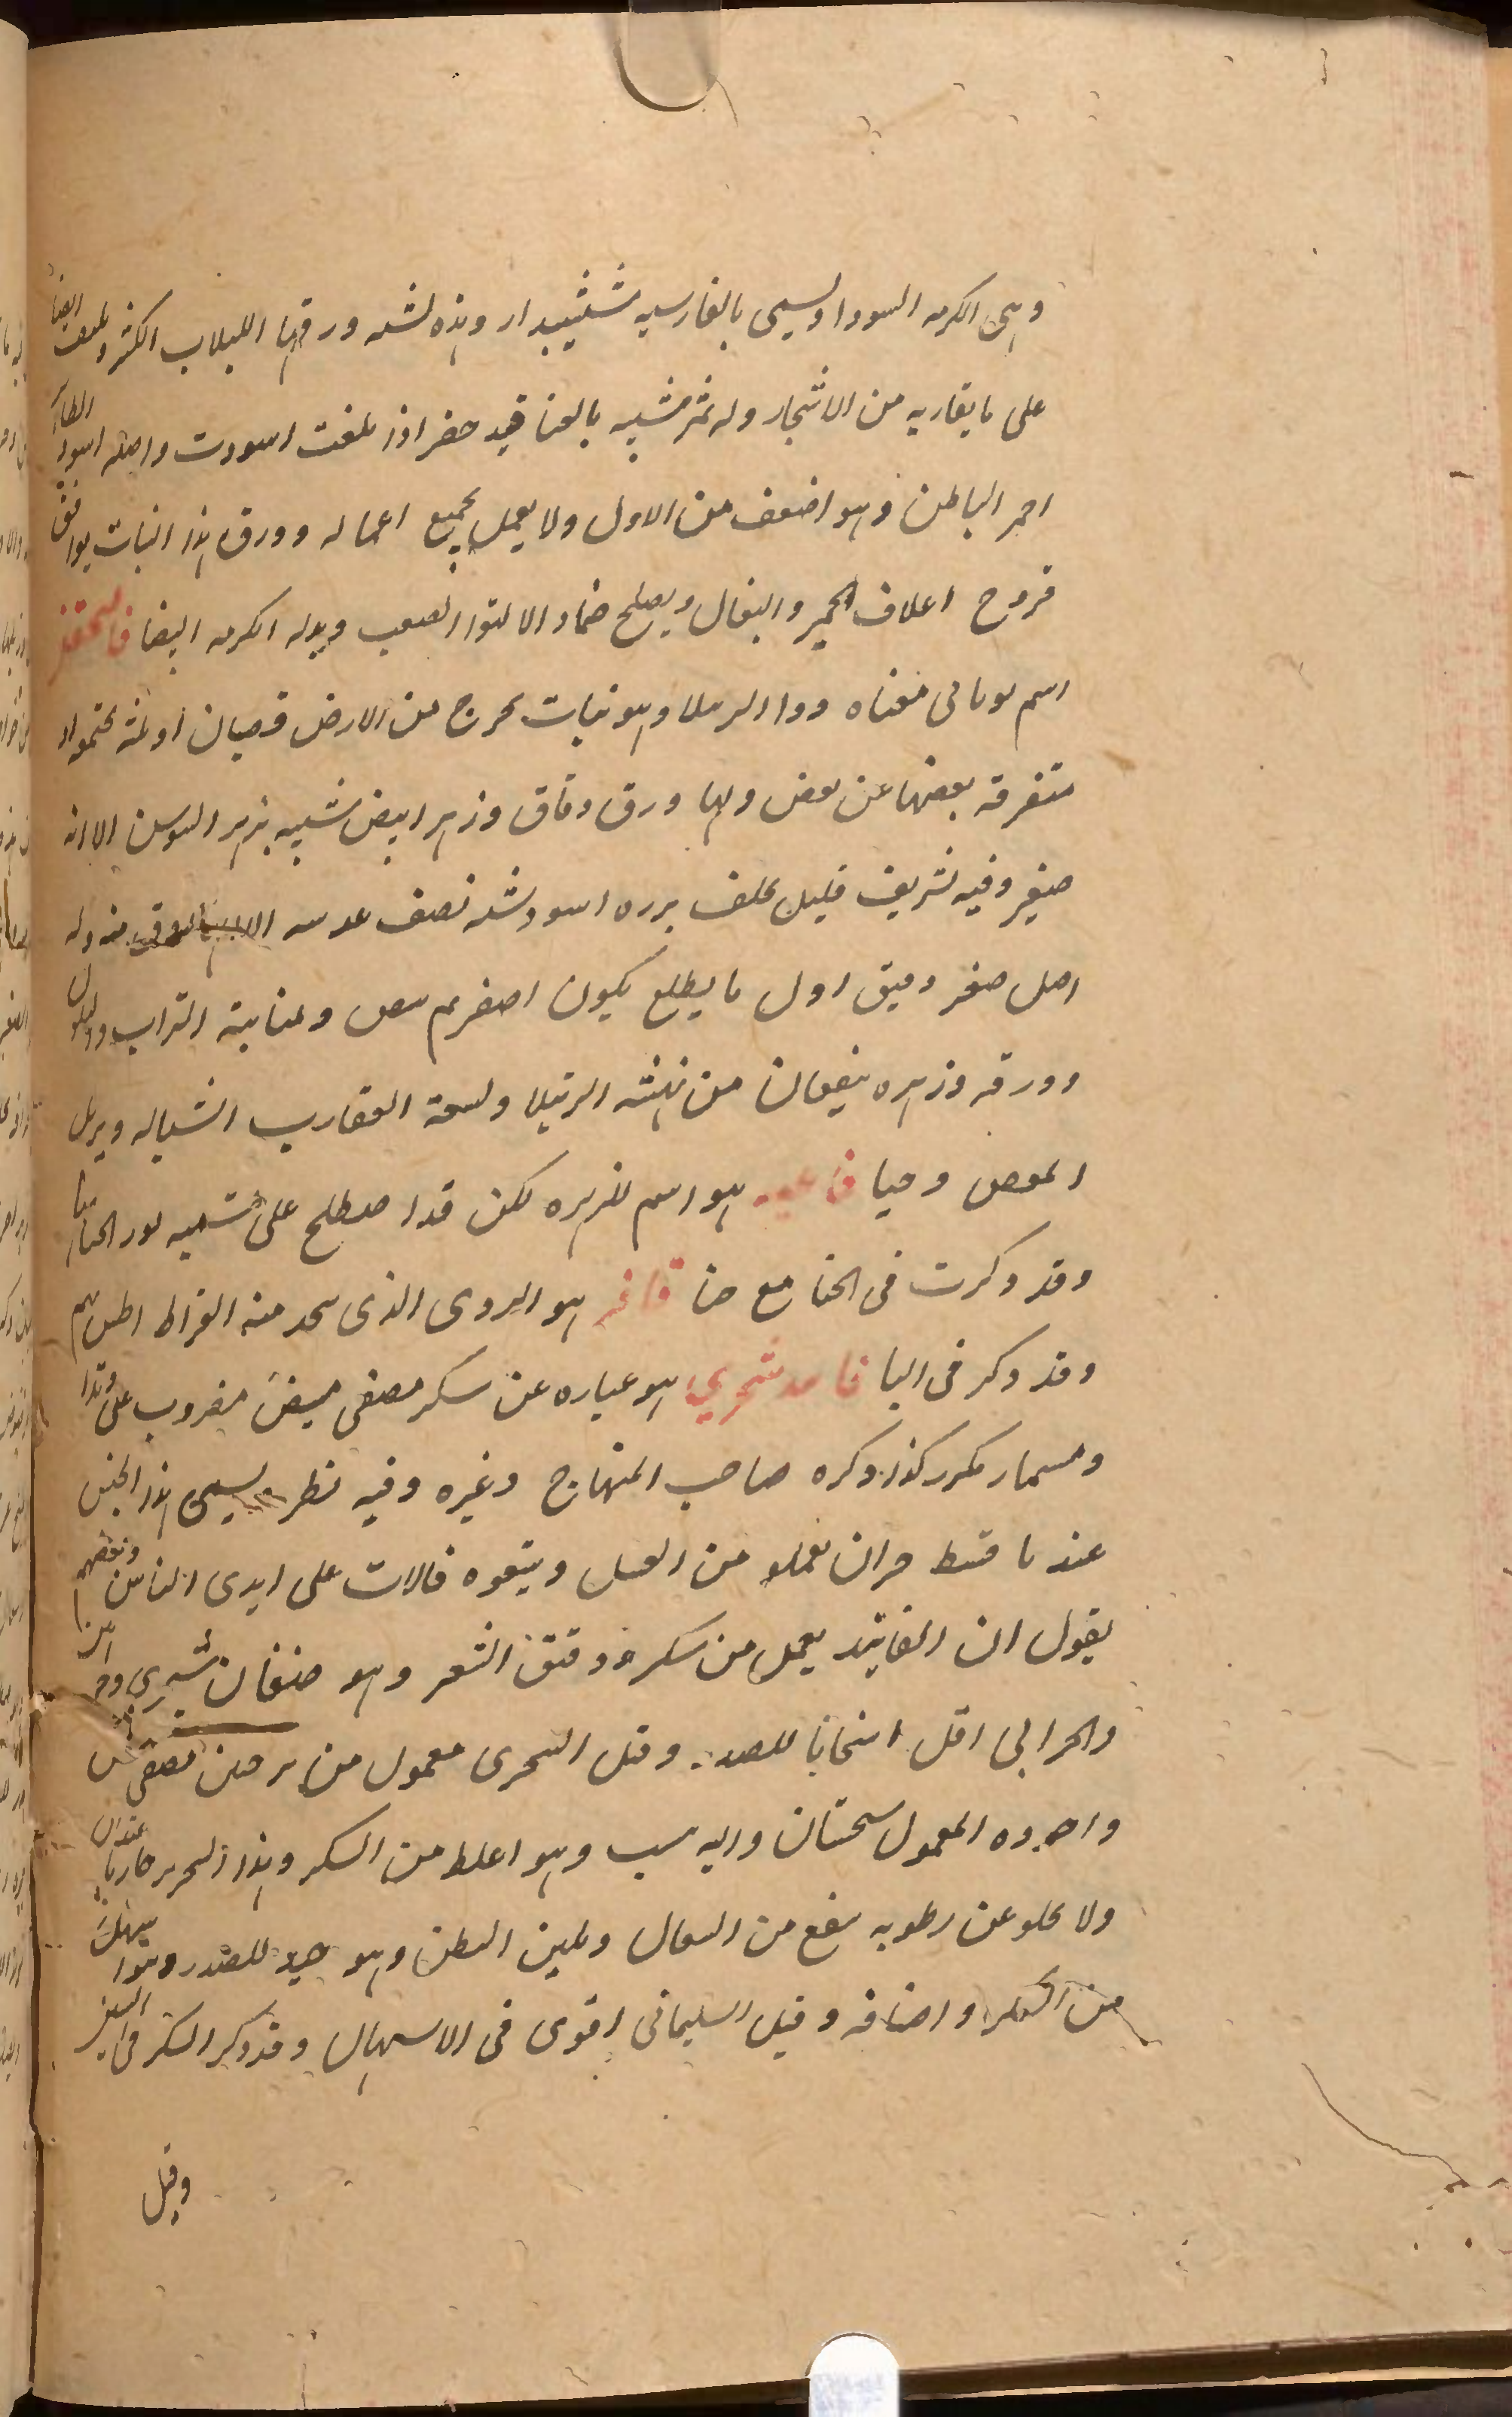 وهى الكرمه السودا ويسمى بالفارسيه ششبندار وهذه تشبه ورقها اللبلاب الكثر ويلتف ايضا
على ما يقاربه من الاشجار وله ثمر شبيه بالعناقيد خضر اذا بلغت اسودت واصله اسود الظاهر
احمر الباطن وهو اضعف من الاول ولا يعمل بجميع اعماله وورق هذا النبات يوافق
قروح اعلاف الحمير والبغال ويصلح ضماد الالتوا العصب وبدله الكرمه البيضا
اسم يونانى معناه دوا الرتيلا وهو نبات يخرج من الارض قضبان او ثلثه
متفرقه بعضها عن بعض ولها ورق دقاق وزهر ابيض شبيه بزهر السوسن الا انه
صغير وفيه تشريف قليل يخلف بزره اسود شبه نصف عدسه منه وله
اصل صغر دقيق اول ما يطلع يكون اصفر ثم يبيض ومنابته التراب والتلول
وورقه وزهره ينفعان من نهشة الرتيلا ولسعة العقارب الشياله ويزيل
المغص وحيا فاغيه هو اسم للزهره لكن قد اصطلح على تسميه نور الحنا بها
وقد ذكرت فى الحنا مع حنا هو البردى الذى يتخذ منه القراطيس
وقد ذكر فى البا فانيد سجزى هو عباره عن سكر مصفى مبيض مضروب على وتد
ومسمار مكرر كذا ذكره صاحب المنهاج وغيره وفيه نظر ويسمى هذا الجنس
عندنا قسط حران يعملو من العسل ويبيعوه فالات على ايدى الناس وبعضهم
يقول ان الفانيد يعمل من سكر ودقيق الشعير وهو صنفان
والحرانى اقل اسخانا للصدر وقيل السجزى معمول من ترنجبين مصفى
واجوده المعمول بسجستان واليه ينسب وهو اغلظ من السكر وهذا السجزى حار
ولا يخلو عن رطوبه ينفع من السعال ويلين البطن وهو جيد للصدر
من السكر واصنافه وقيل السليمانى اقوى فى الاسهال وقد ذكر السكر فى السين
وقيل